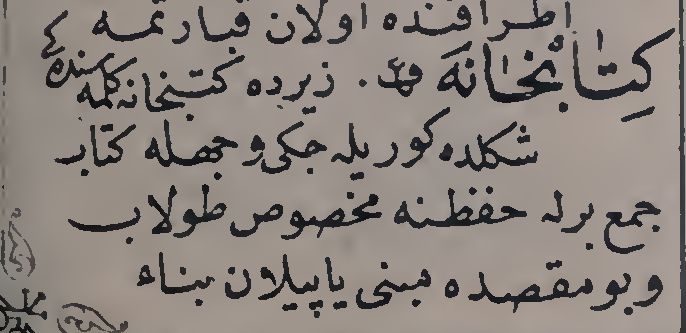 اطرافنده اولان قبارتمه
كِتٰابْخٰانَهَ زيرده كتبخانه كلمه سنده كى
شكلده كوريله جكى وجهله كتاب
جمع برله حفظنه مخصوص طولاب
وبو مقصده مبنى ياپيلان بناء